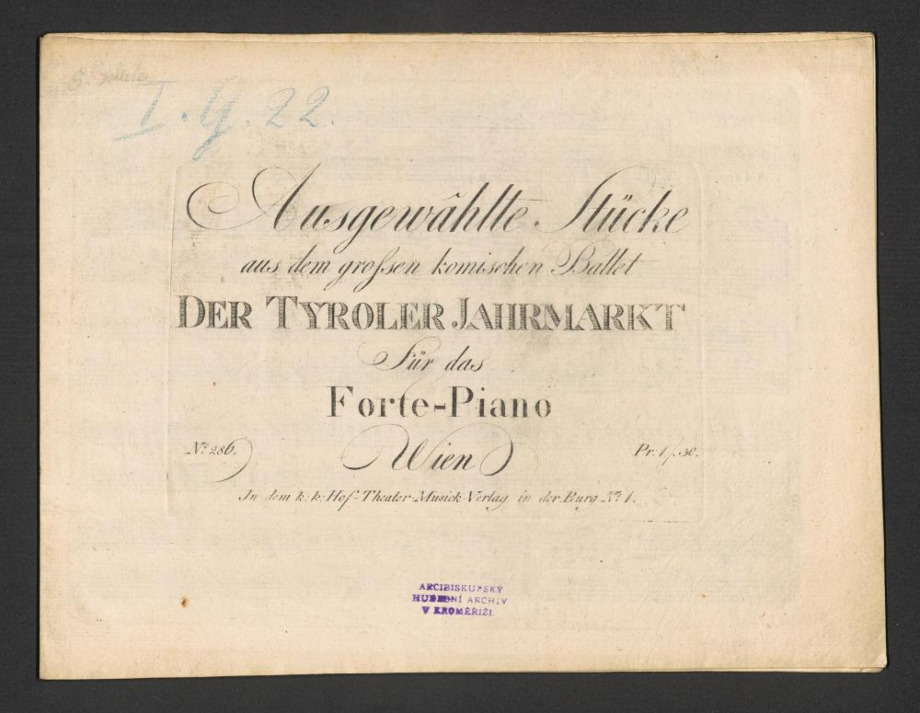 I. G. 22.
Ausgewâhlte Stücke
aus dem grossen komischen Ballet
DER TYROLER JAHRMARKT
Für das
Forte-Piano
Nº 286.
Wien
Pr. 1 f. 30.
In dem k: k: Hof-Theater-Musick-Verlag in der Burg Nº 1.
ARCIBISKUPSKÝ
HUDEBNÍ ARCHIV
V KROMĚŘÍŽI.